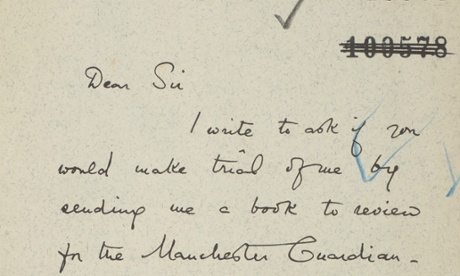 100578
Dear Sir
I write to ask if you
would make trial of me by
sending me a book to review
for the Manchester Guardian.